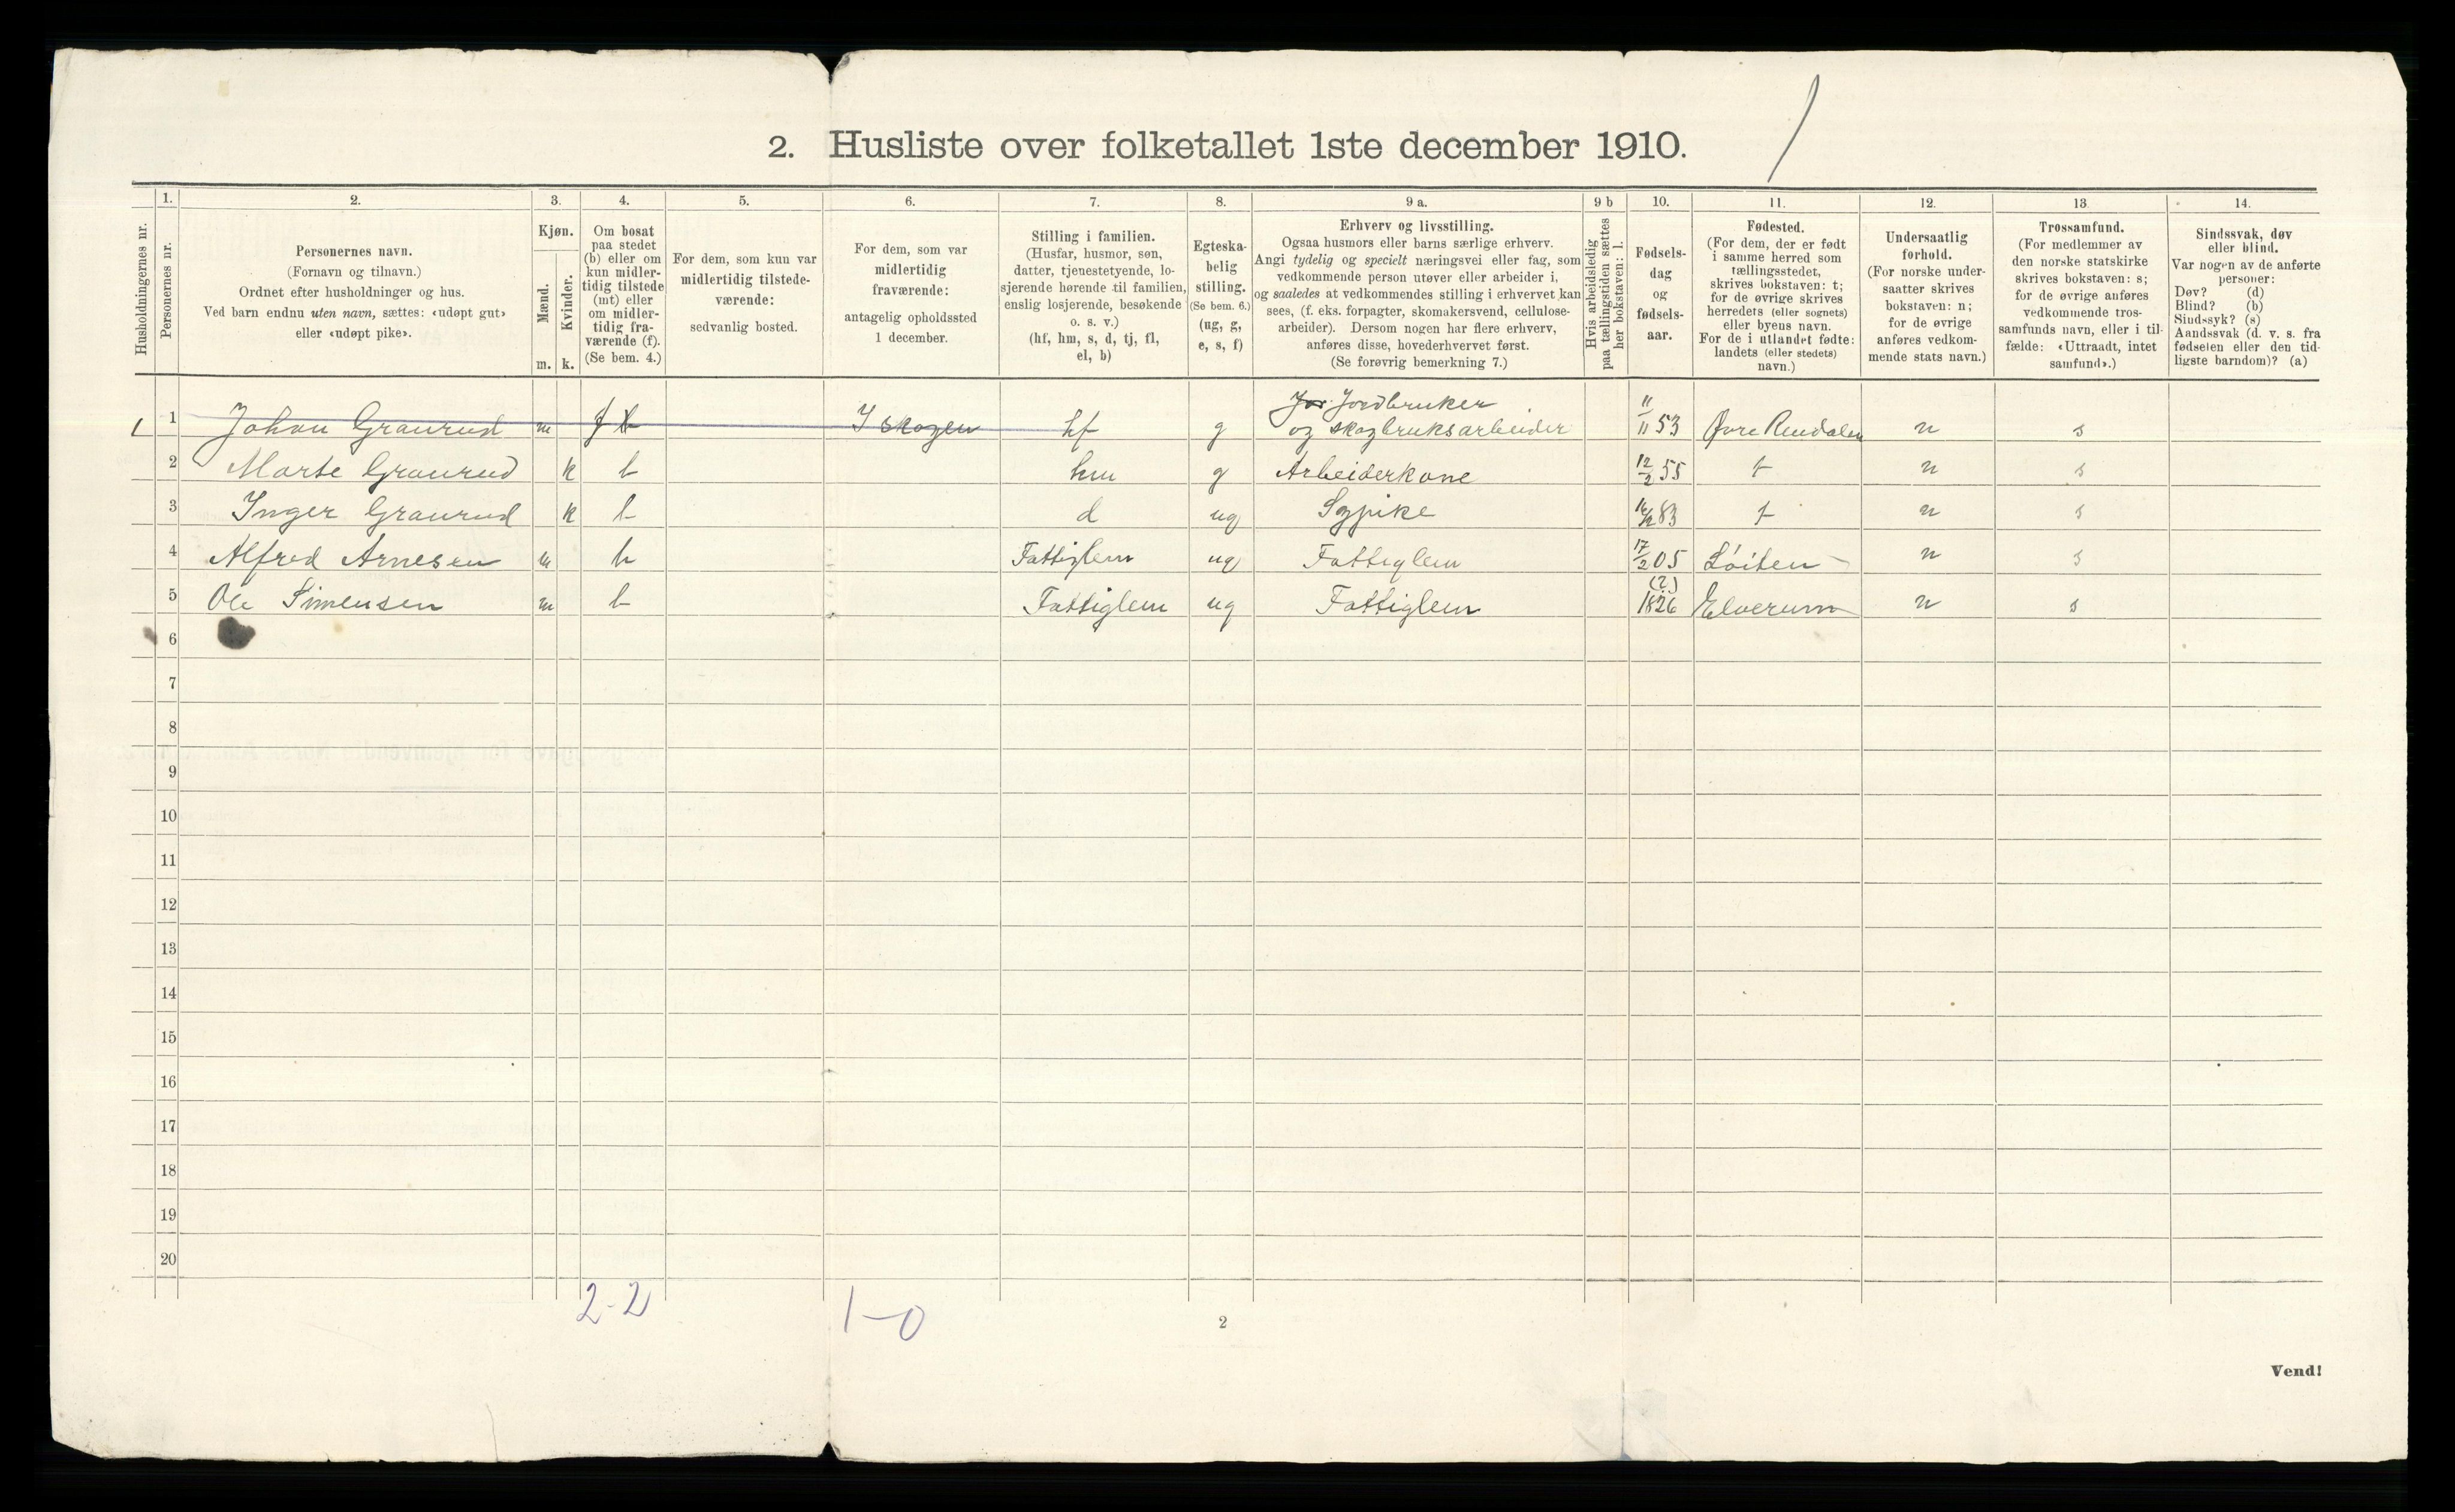 2. Husliste over folketallet 1ste december 1910.
1. 2. 3. 4. 5. 6. 7. 8. 9 a. 9 b 10. 11. 12. 13. 14.
Husholdningernes nr.
Personernes nr.
Personernes navn.
(Fornavn og tilnavn.)
Ordnet efter husholdninger og hus.
Ved barn endnu uten navn, sættes: «udøpt gut»
eller «udøpt pike».
Kjøn.
Mænd.
Kvinder.
m. k.
Om bosat
paa stedet
(b) eller om
kun midler-
tidig tilstede
(mt) eller
om midler-
tidig fra-
værende (f).
(Se bem. 4.)
For dem, som kun var
midlertidig tilstede-
værende:
sedvanlig bosted.
For dem, som var
midlertidig
fraværende:
antagelig opholdssted
1 december.
Stilling i familien.
(Husfar, husmor, søn,
datter, tjenestetyende, lo-
sjerende hørende til familien,
enslig losjerende, besøkende
o. s. v.)
(hf, hm, s, d, tj, fl,
el, b)
Egteska-
belig
stilling.
(Se bem. 6.)
(ug, g,
e, s, f)
Erhverv og livsstilling.
Ogsaa husmors eller barns særlige erhverv.
Angi tydelig og specielt næringsvei eller fag, som
vedkommende person utøver eller arbeider i,
og saaledes at vedkommendes stilling i erhvervet kan
sees, (f. eks. forpagter, skomakersvend, cellulose-
arbeider). Dersom nogen har flere erhverv,
anføres disse, hovederhvervet først.
(Se forøvrig bemerkning 7.)
Hvis arbeidsledig
paa tællingstiden sættes
her bokstaven: l.
Fødsels-
dag
og
fødsels-
aar.
Fødested.
(For dem, der er født
i samme herred som
tællingsstedet,
skrives bokstaven: t;
for de øvrige skrives
herredets (eller sognets)
eller byens navn.
For de i utlandet fødte:
landets (eller stedets)
navn.)
Undersaatlig
forhold.
(For norske under-
saatter skrives
bokstaven: n;
for de øvrige
anføres vedkom-
mende stats navn.)
Trossamfund.
(For medlemmer av
den norske statskirke
skrives bokstaven: s;
for de øvrige anføres
vedkommende tros-
samfunds navn, eller i til-
fælde: «Uttraadt, intet
samfund».)
Sindssvak, døv
eller blind.
Var nogen av de anførte
personer:
Døv? (d)
Blind? (b)
Sindssyk? (s)
Aandssvak (d. v. s. fra
fødselen eller den tid-
ligste barndom)? (a)
Jor Jordbruker
1 1 Johan Graurud m f b I skogen hf g og skogbruksarbeider 11/11 53 Øvre Rendalen n s
2 Marte Graurud k b hm g Arbeiderkone 12/2 55 t n s
3 Inger Graurud k b d ug Sypike 83 t n s
4 Alfred Arnesen m b Fattiglem ug Fattiglem 17/2 05 Løiten n s
5 Ole Simensen m b Fattiglem ug Fattiglem (?) 1826 Elverum n s
6
7
8
9
10
11
12
13
14
15
16
17
18
19
20
2-2 1-0
2
Vend!